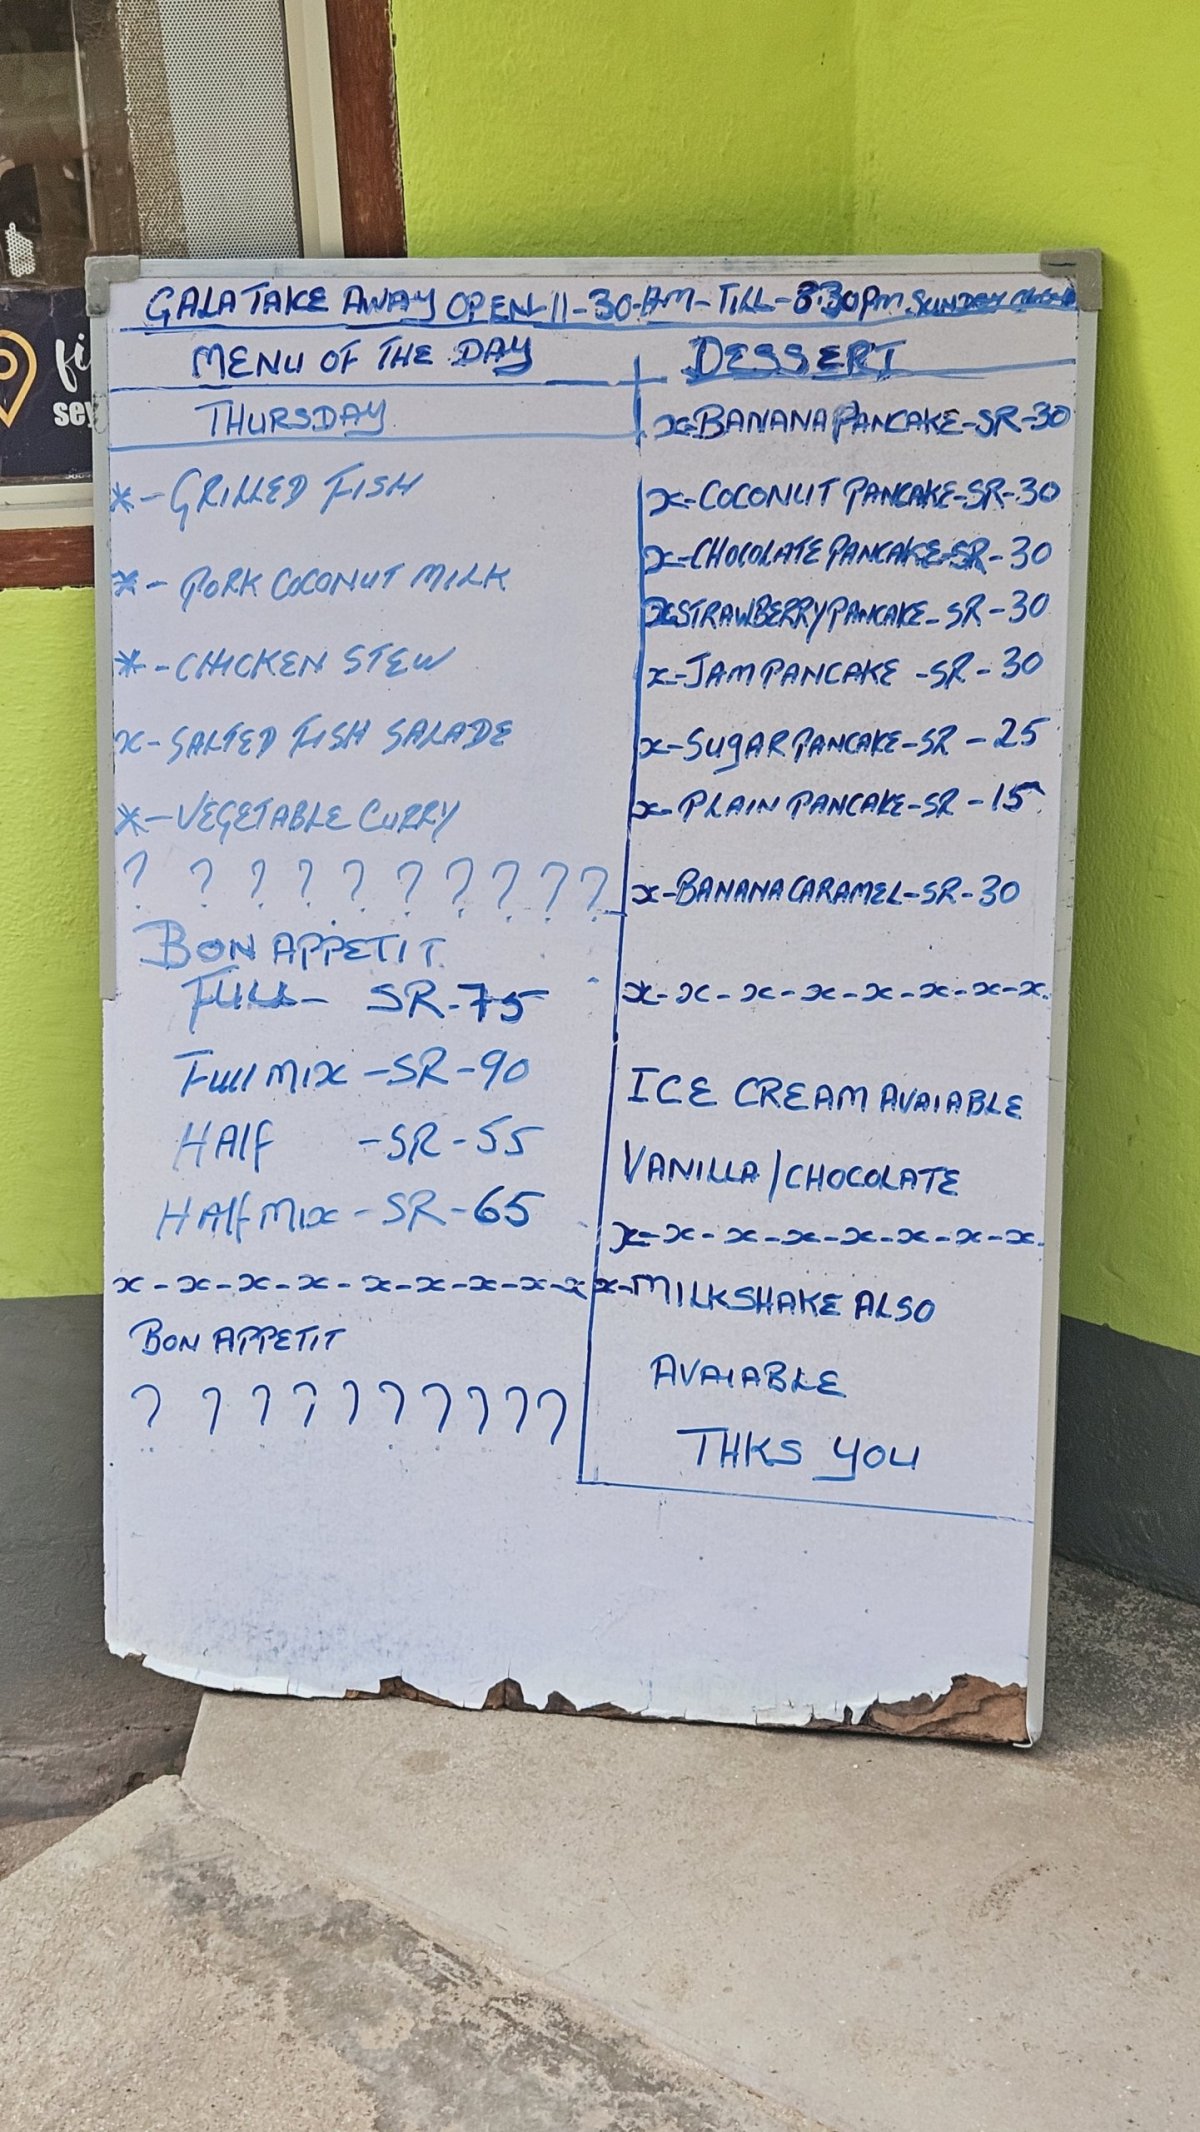 GALA TAKE AWAY OPEN-11-30-AM-TILL-8:30PM. SUNDAY
MENU OF THE DAY
THURSDAY
*-GRILLED FISH
*-PORK COCONUT MILK
*-CHICKEN STEW
x-SALTED FISH SALADE
*-VEGETABLE CURRY
? ? ? ? ? ? ? ? ? ?
BON APPETIT
FULL- SR-75
Full MIX-SR-90
HAlf -SR-55
HAlf MIX-SR-65
x-x-x-x-x-x-x-x-x
BON APPETIT
? ? ? ? ? ? ? ? ? ?
DESSERT
x-BANANA PANCAKE-SR-30
x-COCONUT PANCAKE-SR-30
x-CHOCOLATE PANCAKE-SR-30
x-STRAWBERRY PANCAKE-SR-30
x-JAM PANCAKE-SR-30
x-SUgAR PANCAKE-SR-25
x-PLAIN PANCAKE-SR-15
x-BANANA CARAMEL-SR-30
x-x-x-x-x-x-x-x.
ICE CREAM AVAIABLE
VANILLA/CHOCOLATE
x-x-x-x-x-x-x-x.
x-MILKSHAKE ALSO
AVAIABLE
THKS YOU
fi
sey